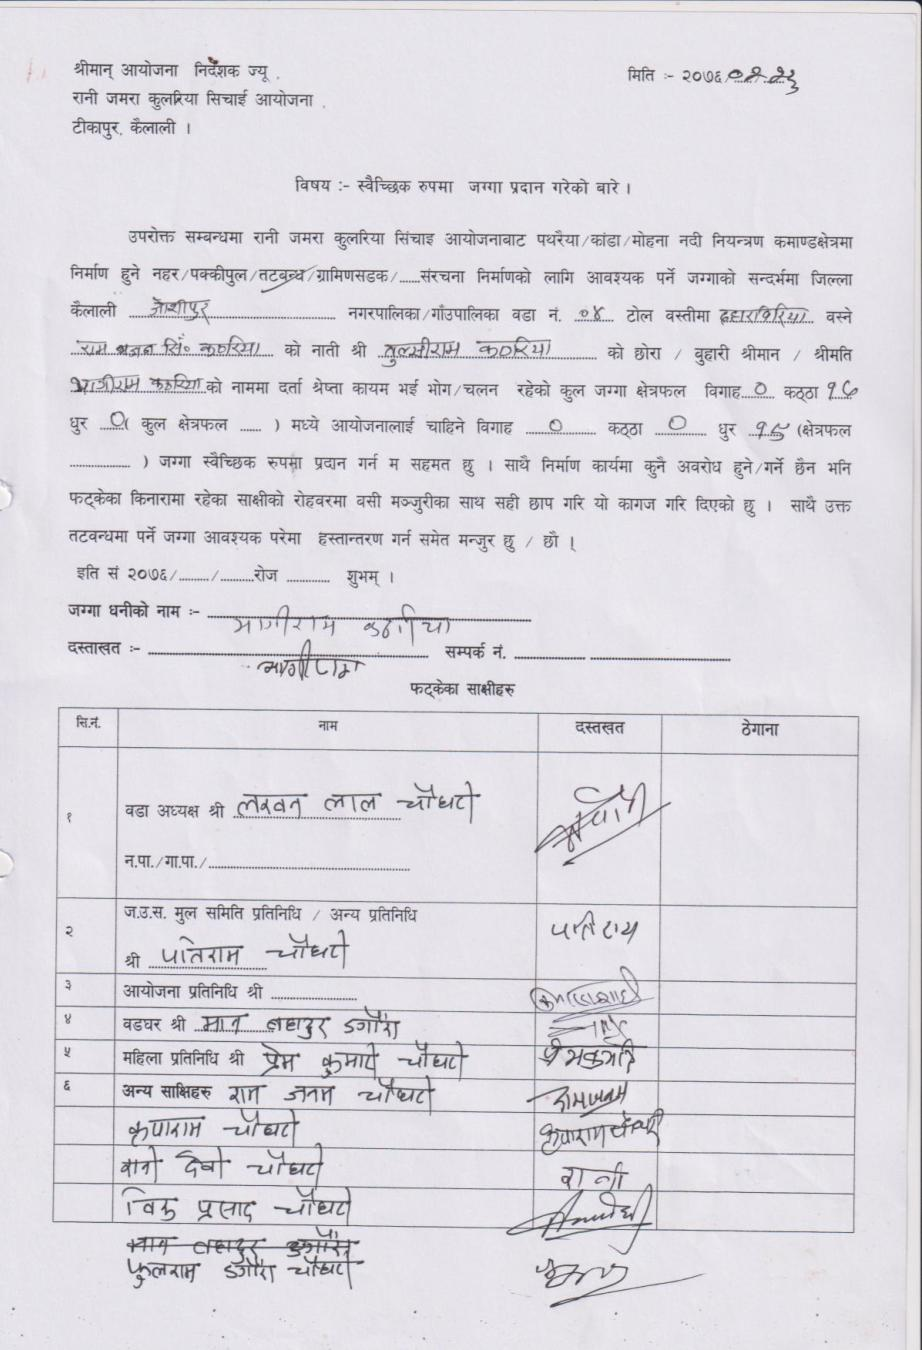 श्रीमान् आयोजना निर्देशक ज्यू .
मिति :- २०७६
रानी जमरा कुलरिया सिचाई आयोजना .
टीकापुर, कैलाली ।
विषय :- स्वैच्छिक रुपमा जग्गा प्रदान गरेको बारे ।
उपरोक्त सम्बन्धमा रानी जमरा कुलरिया सिंचाइ आयोजनाबाट पथरैया/कांडा/मोहना नदी नियन्त्रण कमाण्डक्षेत्रमा
निर्माण हुने नहर/पक्कीपुल/तटबन्ध/ग्रामिणसडक/......संरचना निर्माणको लागि आवश्यक पर्ने जग्गाको सन्दर्भमा जिल्ला
कैलाली जोशीपुर नगरपालिका/गाँउपालिका वडा नं. ०४ टोल वस्तीमा वस्ने
राम भजन सिं कठरिया को नाती श्री तुल्सीराम कठरिया को छोरा / बुहारी श्रीमान / श्रीमति
भागीराम कठरिया को नाममा दर्ता श्रेष्ता कायम भई भोग/चलन रहेको कुल जग्गा क्षेत्रफल विगाह ० कठ्ठा
धुर ० ( कुल क्षेत्रफल ...... ) मध्ये आयोजनालाई चाहिने विगाह ० कठ्ठा ० धुर (क्षेत्रफल
.................. ) जग्गा स्वैच्छिक रुपमा प्रदान गर्न म सहमत छु । साथै निर्माण कार्यमा कुनै अवरोध हुने/गर्ने छैन भनि
फट्केका किनारामा रहेका साक्षीको रोहवरमा वसी मञ्जुरीका साथ सही छाप गरि यो कागज गरि दिएको छु । साथै उक्त
तटवन्धमा पर्ने जग्गा आवश्यक परेमा हस्तान्तरण गर्न समेत मन्जुर छु / छौ ।
इति सं २०७६/........./..........रोज ............. शुभम् ।
जग्गा धनीको नाम :- भागीराम कठरिया
दस्ताखत :- भागीराम सम्पर्क नं. ....................
फट्केका साक्षीहरु
सि.नं. नाम दस्तखत ठेगाना
१ वडा अध्यक्ष श्री लखन लाल चौधरी
न.पा./गा.पा./..................
२ ज.उ.स. मुल समिति प्रतिनिधि / अन्य प्रतिनिधि
श्री पतिराम चौधरी पतिराम
३ आयोजना प्रतिनिधि श्री ....................
४ वडघर श्री मान बहादुर डगौरा
५ महिला प्रतिनिधि श्री प्रेम कुमारी चौधरी प्रेमकुमारी
६ अन्य साक्षिहरु राम जनम चौधरी रामजनम
कृपाराम चौधरी कृपाराम चौधरी
रानी देवी चौधरी रानी
प्रसाद चौधरी
मान बहादुर डगौरा
फुलराम डगौरा चौधरी